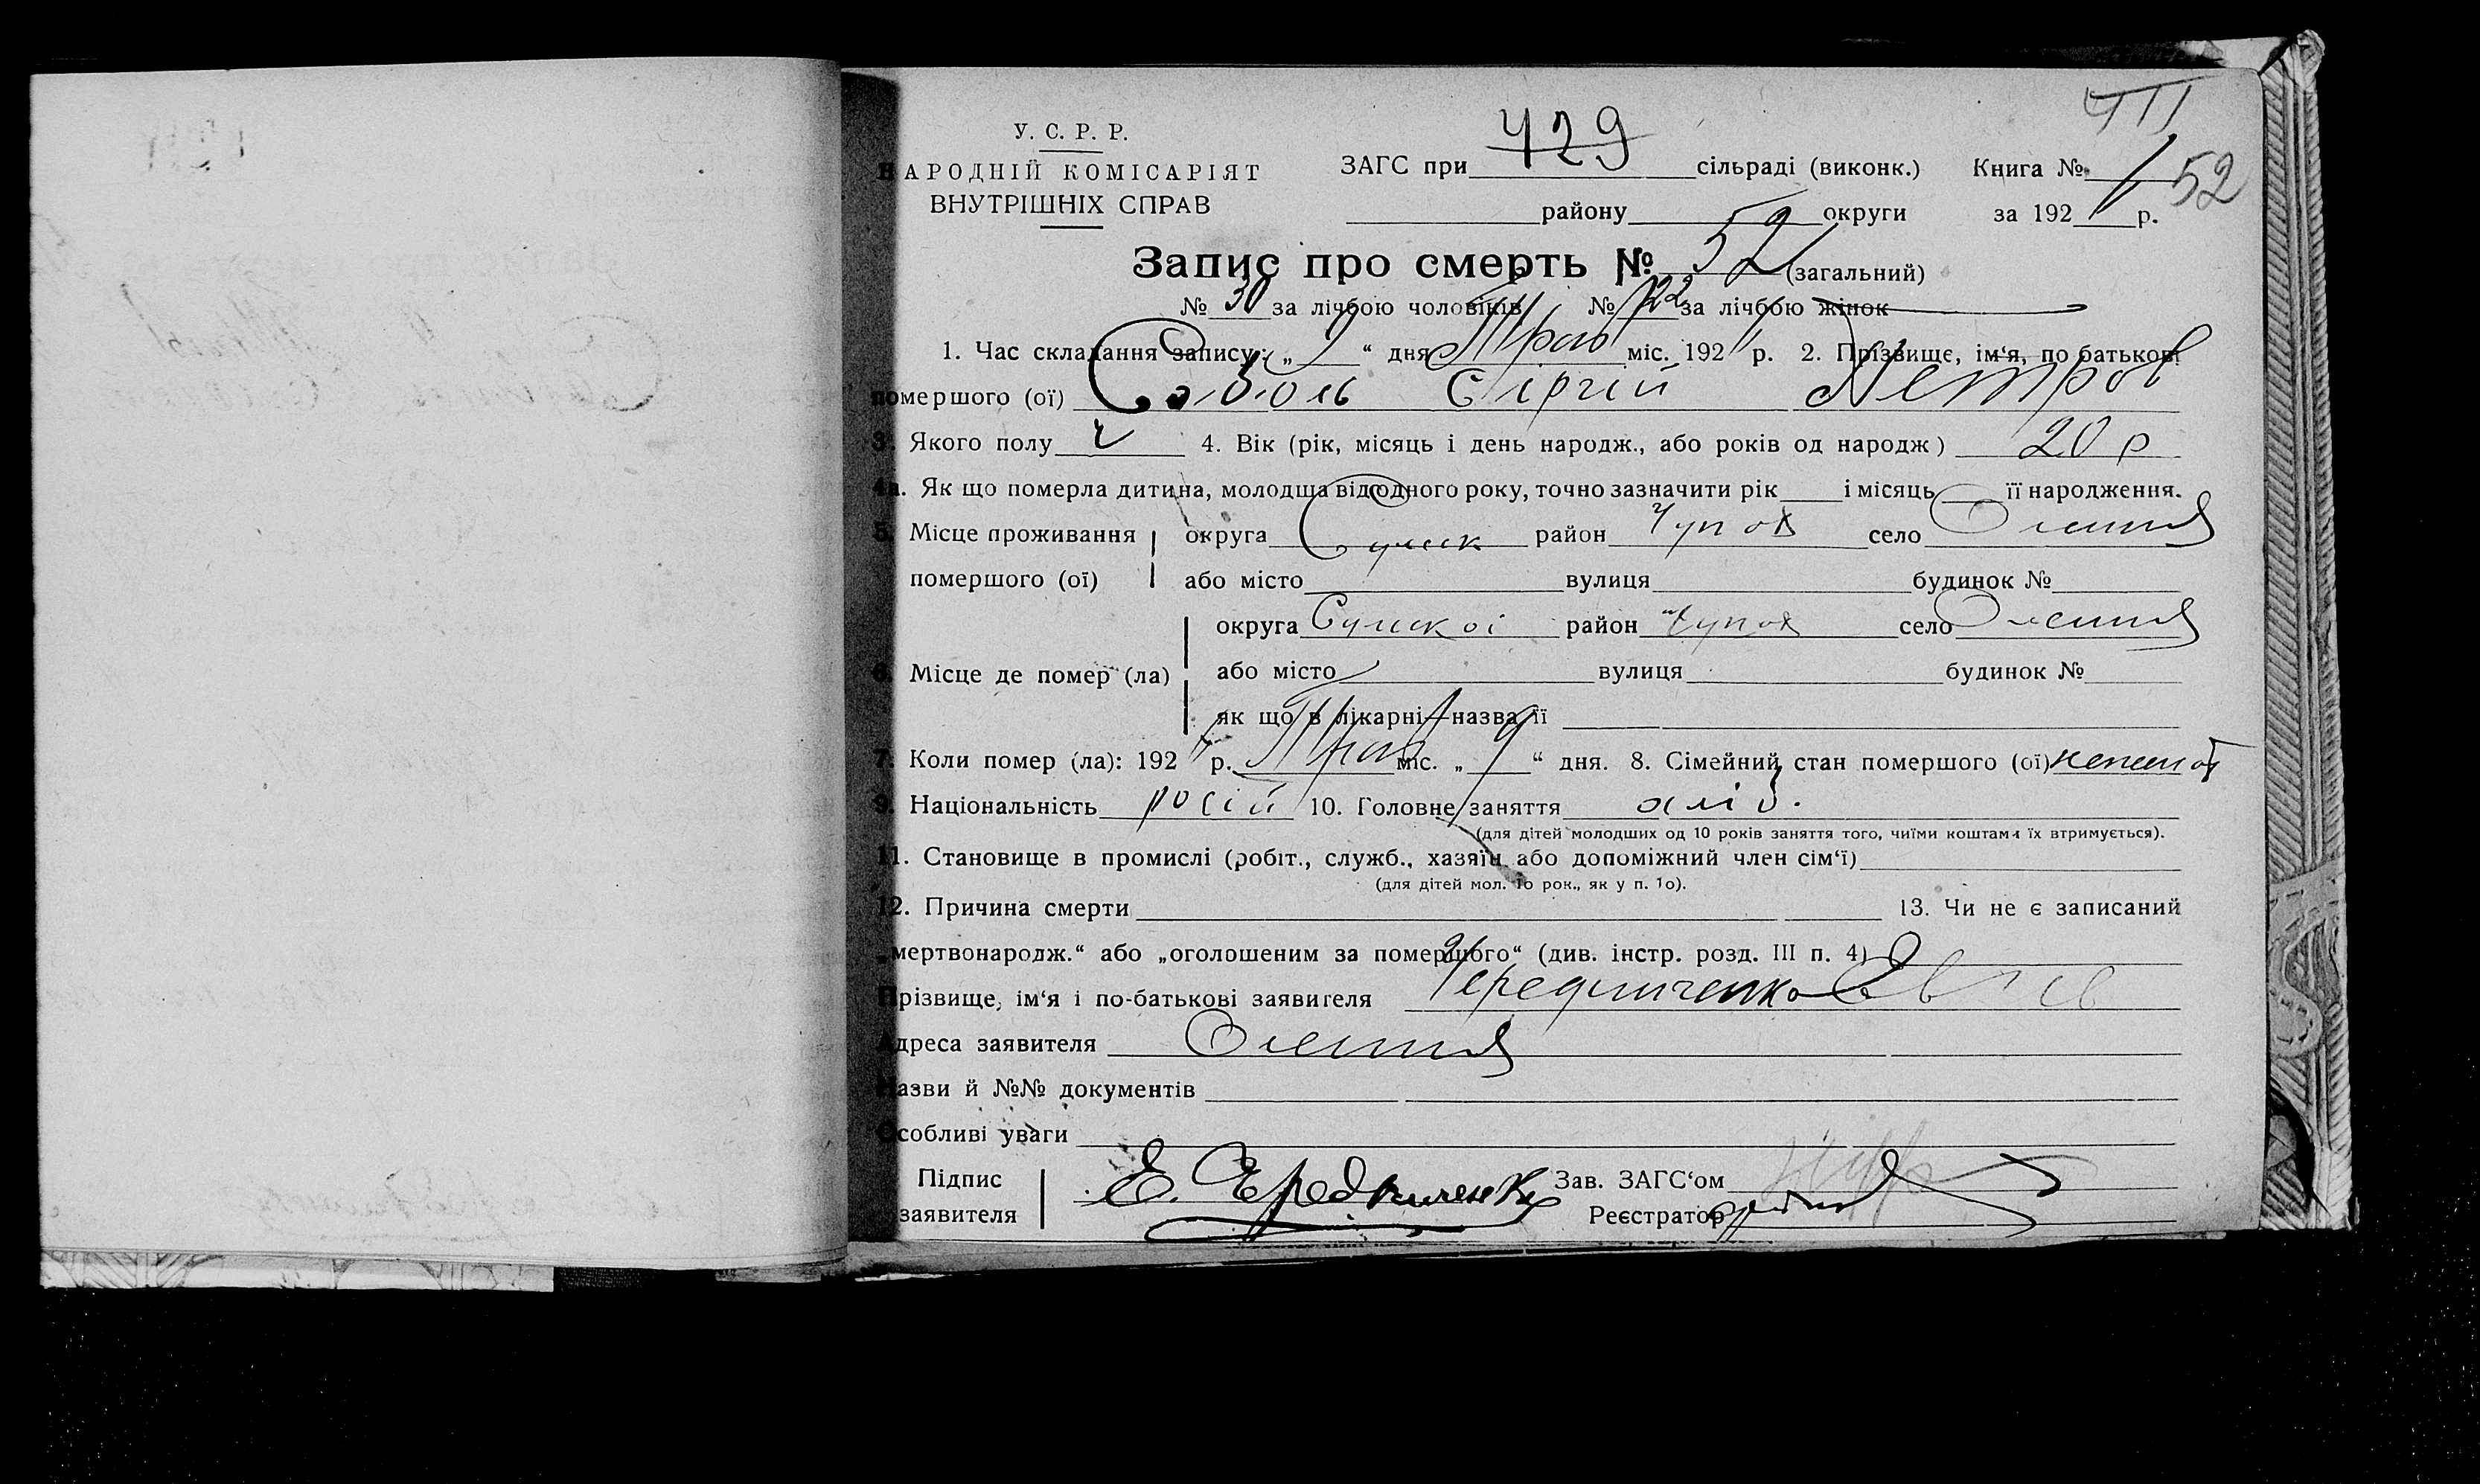 У. С. Р. Р.
НАРОДНІЙ КОМІСАРІЯТ
ВНУТРІШНІХ СПРАВ
ЗАГС при 429 сільраді (виконк.) Книга № 52
району округи за 192 р.
Запис про смерть № 52 (загальний)
№ 30 за лічбою чоловіків № 22 за лічбою жінок
1. Час складання запису: „ 9 “ дня Трав міс. 192 р. 2. Прізвище, ім‘я, по батькові
помершого (ої) Соболь Сіргій Петров
3. Якого полу ч 4. Вік (рік, місяць і день народж., або років од народж) 20 р
4а. Як що померла дитина, молодша від одного року, точно зазначити рік і місяць її народження.
5. Місце проживання округа Сумск район Чупах село
помершого (ої) або місто вулиця будинок №
округа Сумскоі район Чупах село
6. Місце де помер (ла) або місто вулиця будинок №
як що в лікарні—назва її
7. Коли помер (ла): 192 р. Трав міс. „ 9 “ дня. 8. Сімейний стан помершого (ої)
9. Національність росій 10. Головне заняття
(для дітей молодших од 10 років заняття того, чиїми коштами їх втримується).
11. Становище в промислі (робіт., служб., хазяїн або допоміжний член сім‘ї)
(для дітей мол. 1о рок., як у п. 1о).
12. Причина смерти 13. Чи не є записаний
„мертвонародж.“ або „оголошеним за помершого“ (див. інстр. розд. III п. 4)
Прізвище, ім‘я і по-батькові заявителя Чередниченко
Адреса заявителя
Назви й №№ документів
Особливі уваги
Підпис Е. Чередниченко Зав. ЗАГС‘ом
заявителя Реєстратор